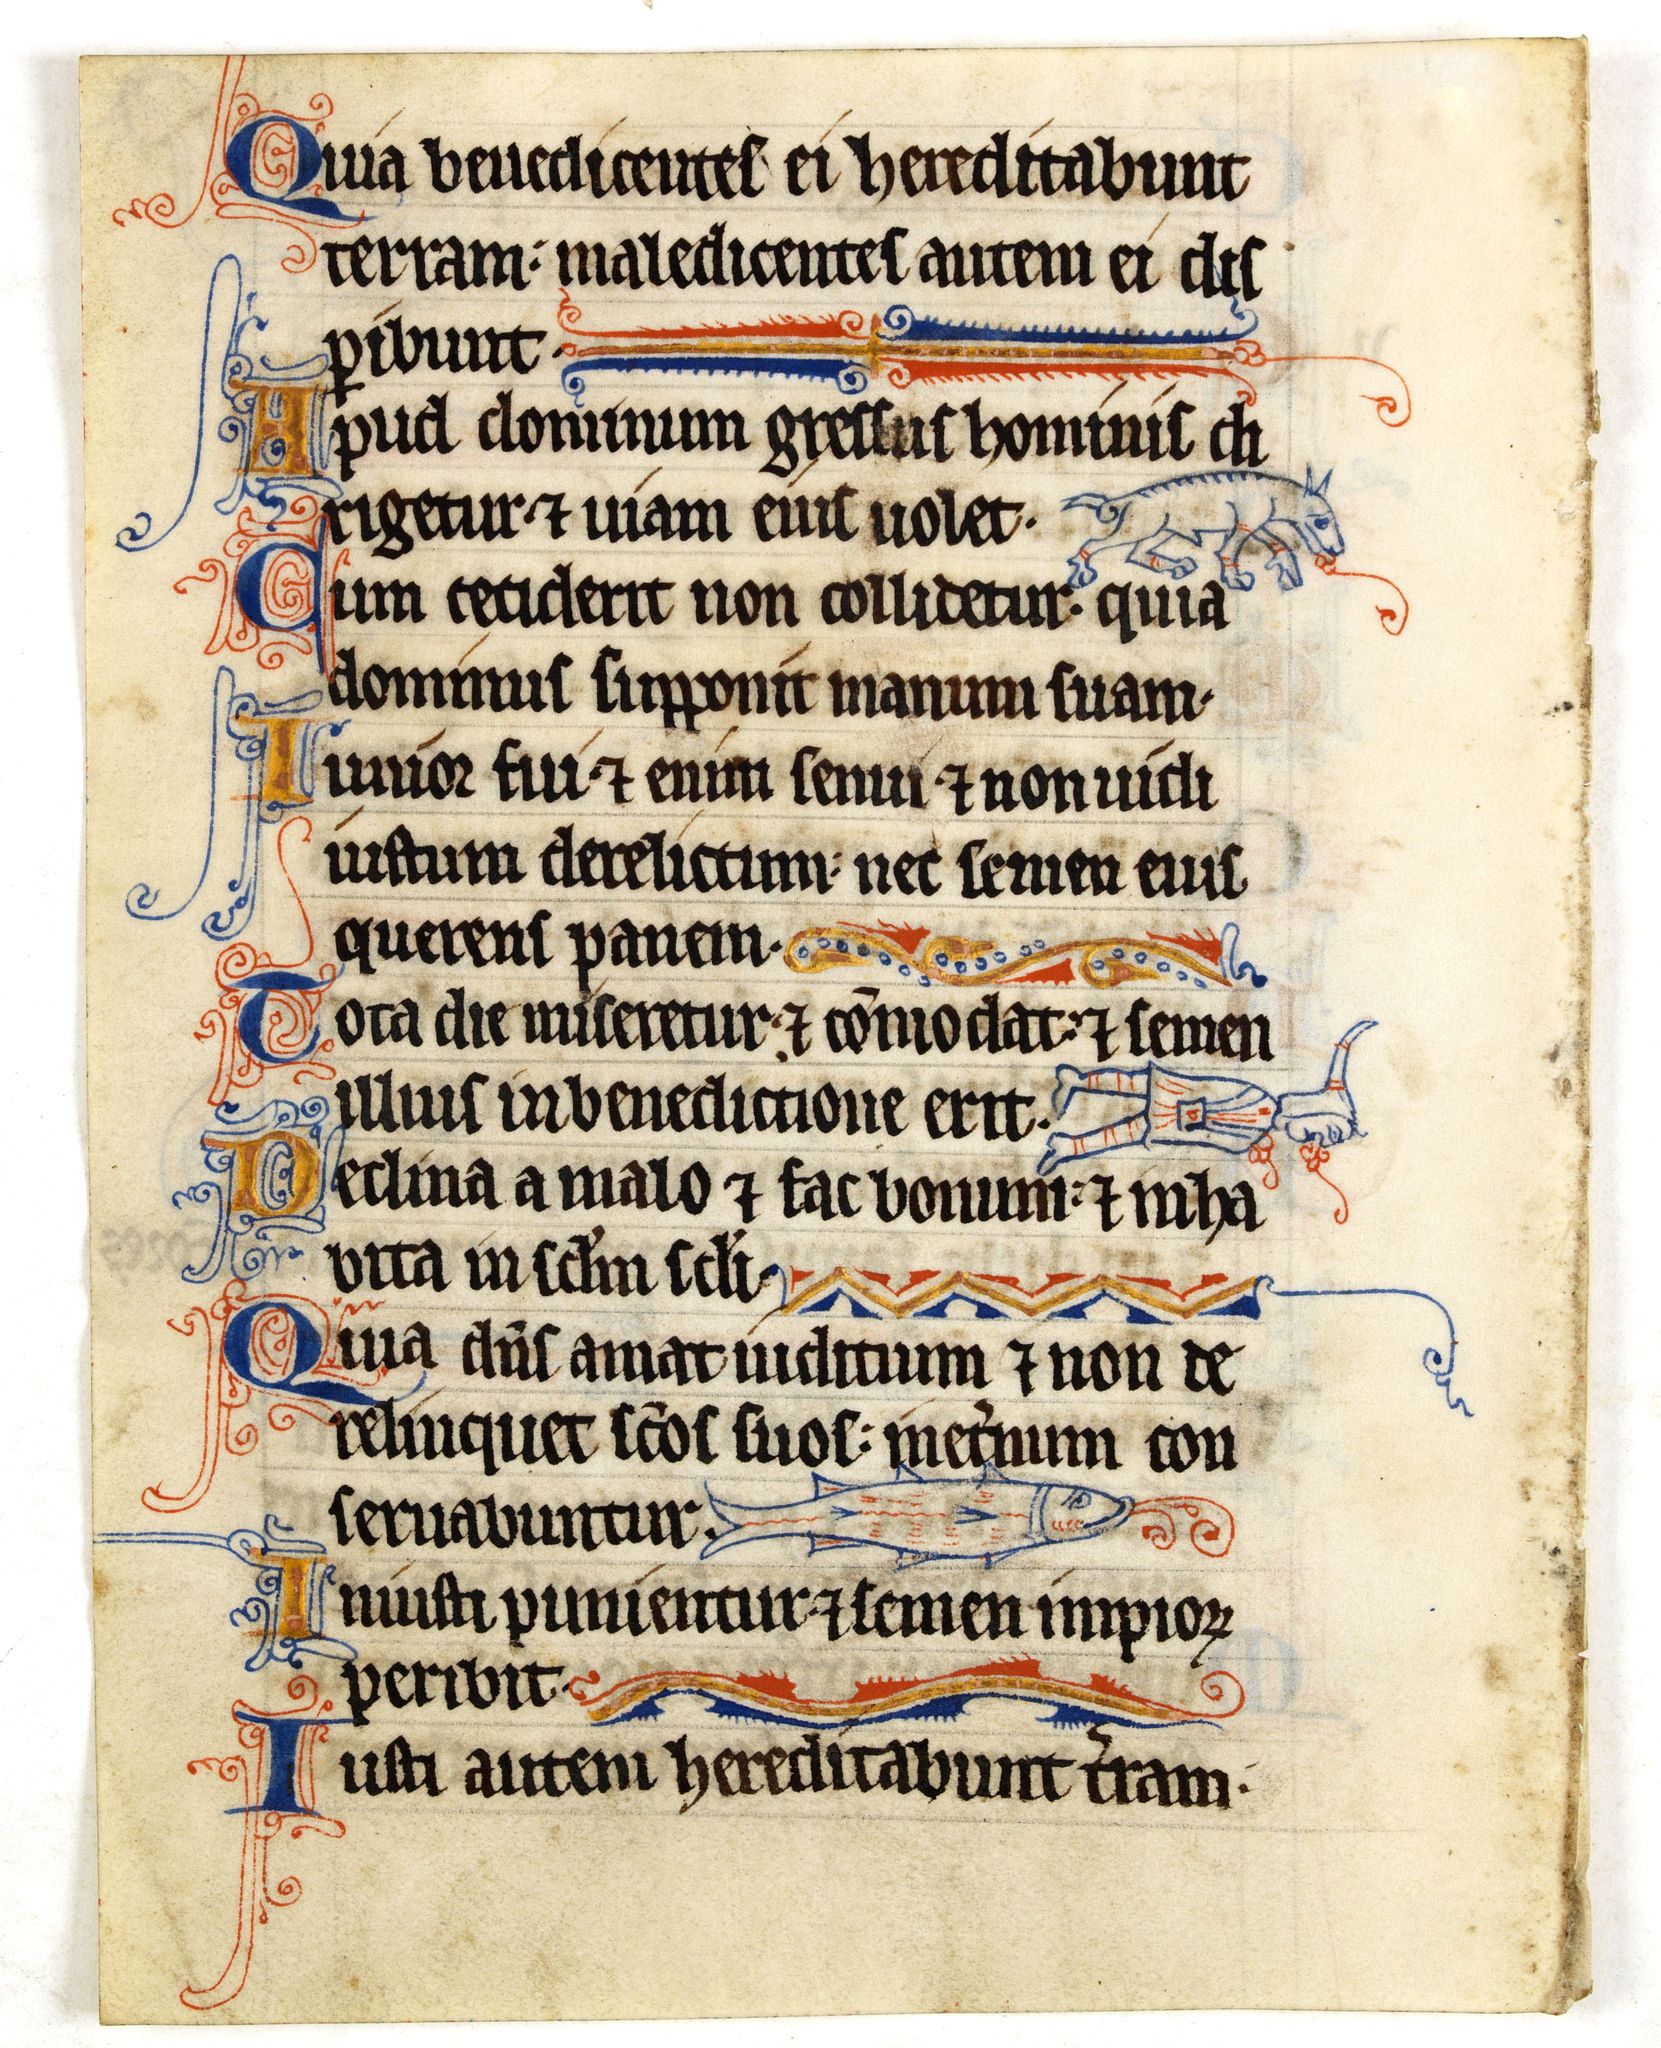 Quia benedicentes ei hereditabunt
terram: maledicentes autem ei dis
pibunt.
Apud dominum gressus hominis di
rigetur. ⁊ uiam eius uolet.
Cum ceciderit non collidetur. quia
dominus supponit manum suam.
Iunior fui. ⁊ enim senui. ⁊ non uidi
iustum derelictum: nec semen eius
querens panem.
Tota die miseretur. ⁊ cōmodat: ⁊ semen
illius in benedictione erit.
Declina a malo ⁊ fac bonum: ⁊ inha
bita in sclm̄ scli.
Quia dn̄s amat iudicium ⁊ non de
relinquet sc̄os suos: inet̾num con
seruabuntur.
Iniusti punientur. ⁊ semen impioꝝ
peribit.
Iusti autem hereditabunt t̾ram.